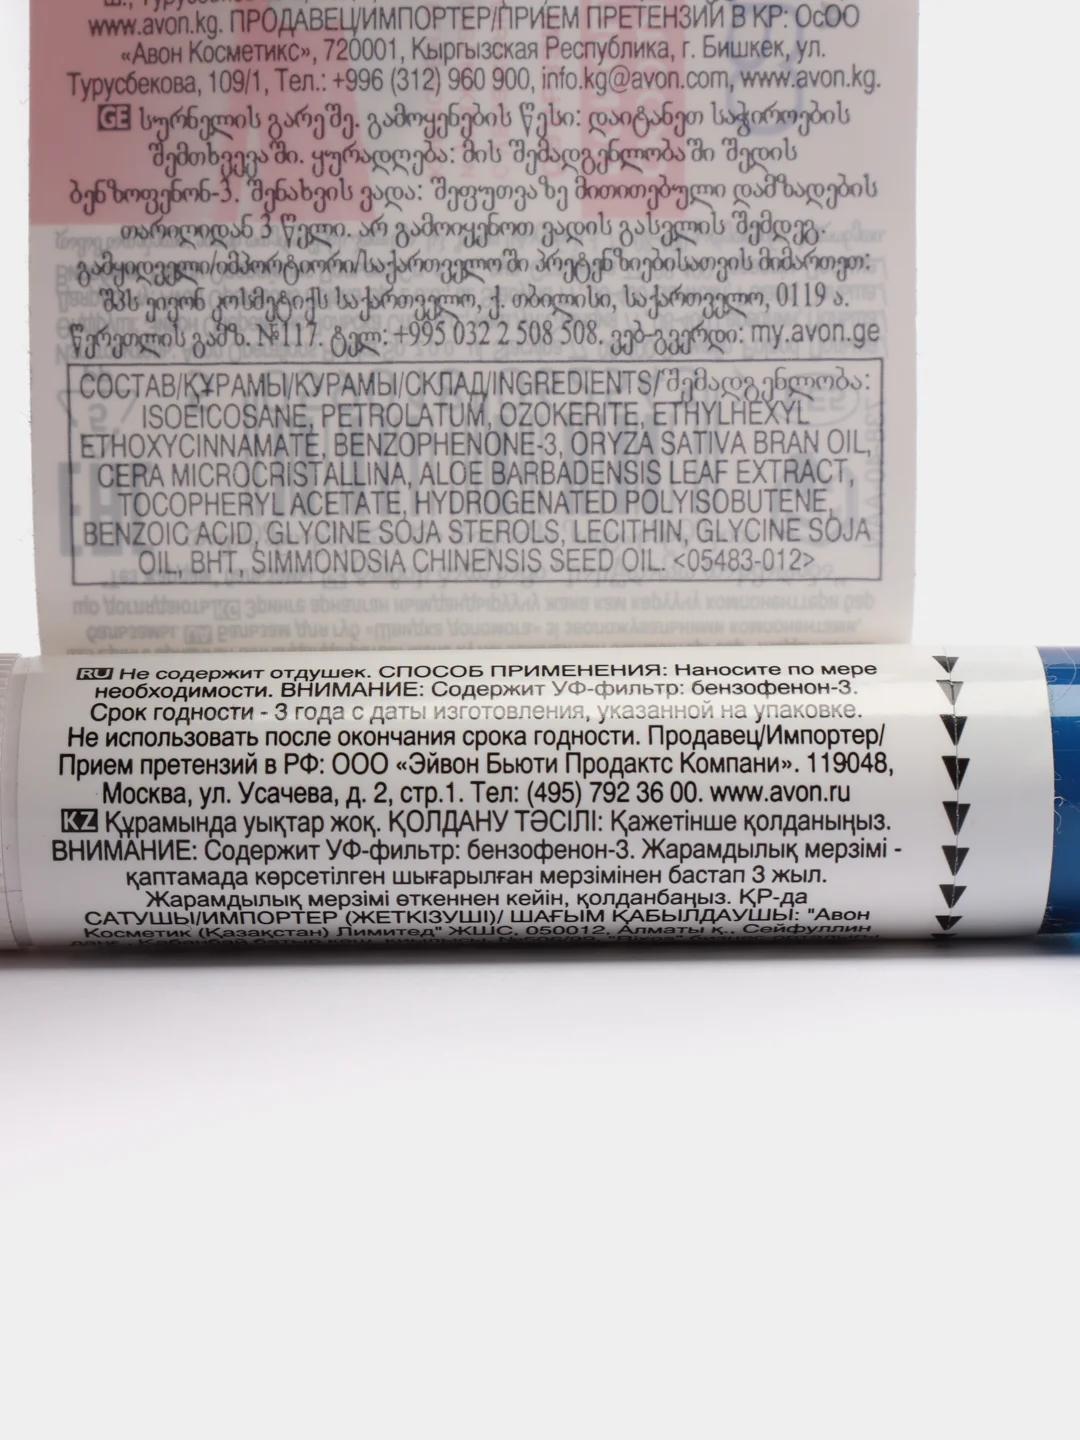 www.avon.kg. ПРОДАВЕЦ/ИМПОРТЕР/ПРИЕМ ПРЕТЕНЗИЙ В КР: ОсОО
«Авон Косметикс», 720001, Кыргызская Республика, г. Бишкек, ул.
Турусбекова, 109/1, Тел.: +996 (312) 960 900, info.kg@avon.com, www.avon.kg.
GE სურნელის გარეშე. გამოყენების წესი: დაიტანეთ საჭიროების
შემთხვევაში. ყურადღება: მის შემადგენლობაში შედის
ბენზოფენონ-3. შენახვის ვადა: შეფუთვაზე მითითებული დამზადების
თარიღიდან 3 წელი. არ გამოიყენოთ ვადის გასვლის შემდეგ.
გამყიდველი/იმპორტიორი/საქართველოში პრეტენზიებისათვის მიმართეთ:
შპს ეივონ კოსმეტიქს საქართველო, ქ. თბილისი, საქართველო, 0119 ა.
წერეთლის გამზ. №117. ტელ: +995 032 2 508 508. ვებ-გვერდი: my.avon.ge
СОСТАВ/ҚҰРАМЫ/КУРАМЫ/СКЛАД/INGREDIENTS/შემადგენლობა:
ISOEICOSANE, PETROLATUM, OZOKERITE, ETHYLHEXYL
ETHOXYCINNAMATE, BENZOPHENONE-3, ORYZA SATIVA BRAN OIL,
CERA MICROCRISTALLINA, ALOE BARBADENSIS LEAF EXTRACT,
TOCOPHERYL ACETATE, HYDROGENATED POLYISOBUTENE,
BENZOIC ACID, GLYCINE SOJA STEROLS, LECITHIN, GLYCINE SOJA
OIL, BHT, SIMMONDSIA CHINENSIS SEED OIL. <05483-012>
RU Не содержит отдушек. СПОСОБ ПРИМЕНЕНИЯ: Наносите по мере
необходимости. ВНИМАНИЕ: Содержит УФ-фильтр: бензофенон-3.
Срок годности - 3 года с даты изготовления, указанной на упаковке.
Не использовать после окончания срока годности. Продавец/Импортер/
Прием претензий в РФ: ООО «Эйвон Бьюти Продактс Компани». 119048,
Москва, ул. Усачева, д. 2, стр.1. Тел: (495) 792 36 00. www.avon.ru
KZ Құрамында уықтар жоқ. ҚОЛДАНУ ТӘСІЛІ: Қажетінше қолданыңыз.
ВНИМАНИЕ: Содержит УФ-фильтр: бензофенон-3. Жарамдылық мерзімі -
қаптамада көрсетілген шығарылған мерзімінен бастап 3 жыл.
Жарамдылық мерзімі өткеннен кейін, қолданбаңыз. ҚР-да
САТУШЫ/ИМПОРТЕР (ЖЕТКІЗУШІ)/ ШАҒЫМ ҚАБЫЛДАУШЫ: "Авон
Косметик (Қазақстан) Лимитед" ЖШС, 050012, Алматы қ., Сейфуллин